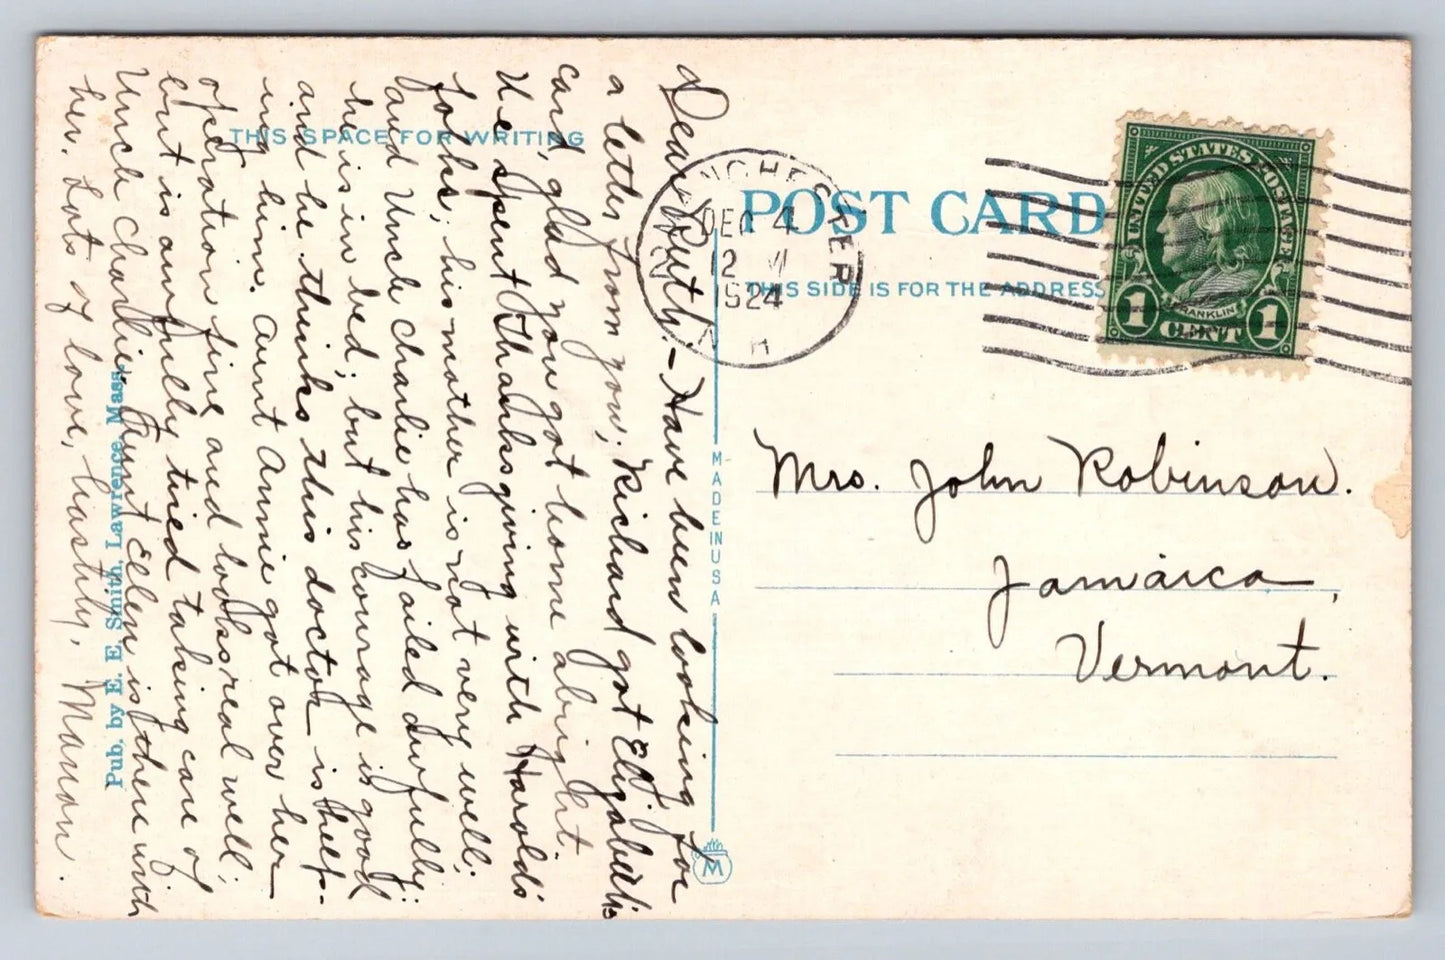 THIS SPACE FOR WRITING
POST CARD
THIS SIDE IS FOR THE ADDRESS
MANCHESTER
DEC 4
12 M
1924
N H
UNITED STATES POSTAGE
FRANKLIN
1 CENT 1
Dear Ruth:- Have been looking for
a letter from you; Richard got Elizabeth's
card, glad you got home alright.
We spent Thanksgiving with Harold's
folks; his mother is not very well;
and Uncle Charlie has failed awfully;
he is in bed; but his courage is good
and he thinks this doctor is help-
ing him. Aunt Annie got over her
operation fine and looks real well;
but is awfully tired taking care of
Uncle Charlie. Aunt Ellen is there with
her. Lots of love, hastily, Manon.
Mrs. John Robinson.
Jamaica,
Vermont.
MADE IN USA
M
Pub. by E. E. Smith, Lawrence, Mass.